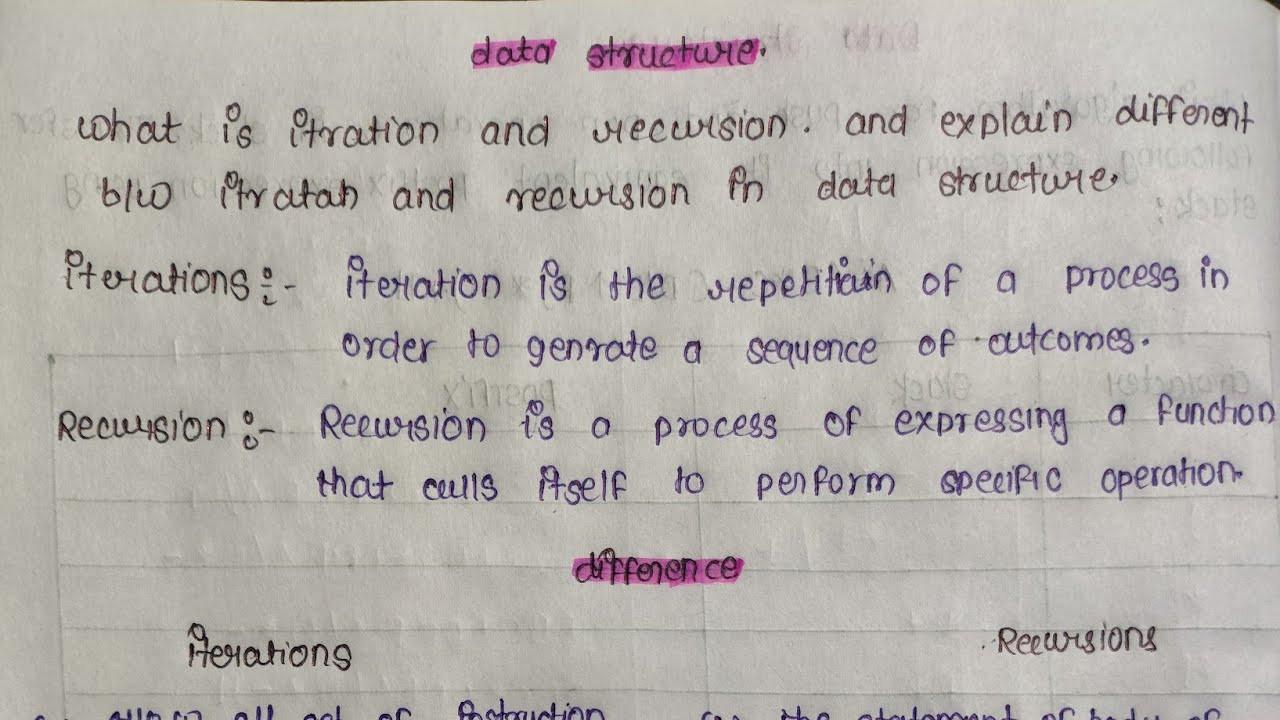 data structure.
what is itration and recursion. and explain different
b/w itratan and recursion in data structure.
iterations:- iteration is the repetition of a process in
order to genrate a sequence of outcomes.
Recursion:- Recursion is a process of expressing a function
that calls itself to perform specific operation.
difference
iterations Recursions
all set of instruction the statement of body of